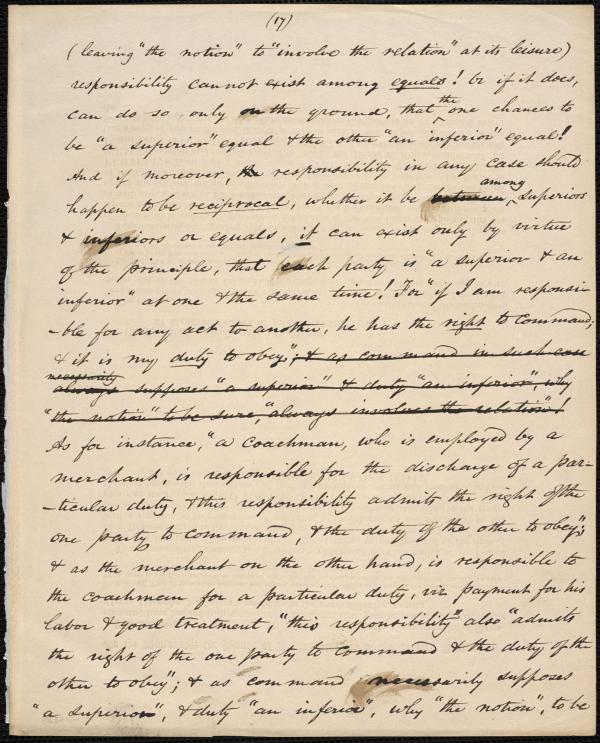 (17)
(leaving "the notion" to "involve the relation" at its leisure)
responsibility cannot exist among equals! or if it does,
can do so only on the ground, that the one chances to
be "a superior" equal & the other "an inferior" equal!
And if moreover, the responsibility in any case should
happen to be reciprocal, whether it be between among, superiors
& inferiors or equals, it can exist only by virtue
of the principle, that each party is "a superior & an
inferior" at one & the same time! For "if I am responsi-
-ble for any act to another, he has the right to command;
& it is my duty to obey"; & as command in such case
necessarily
always supposes "a superior" & duty "an inferior", why
"the notion" to be sure, "always involves the relation"!
As for instance, "a coachman, who is employed by a
merchant, is responsible for the discharge of a par-
-ticular duty, & this responsibility admits the right of the
one party to command, & the duty of the other to obey";
& as the merchant on the other hand, is responsible to
the coachman for a particular duty, viz payment for his
labor & good treatment, "this responsibility" also "admits
the right of the one party to command & the duty of the
other to obey"; & as command necessarily supposes
"a superior", & duty "an inferior", why "the notion", to be